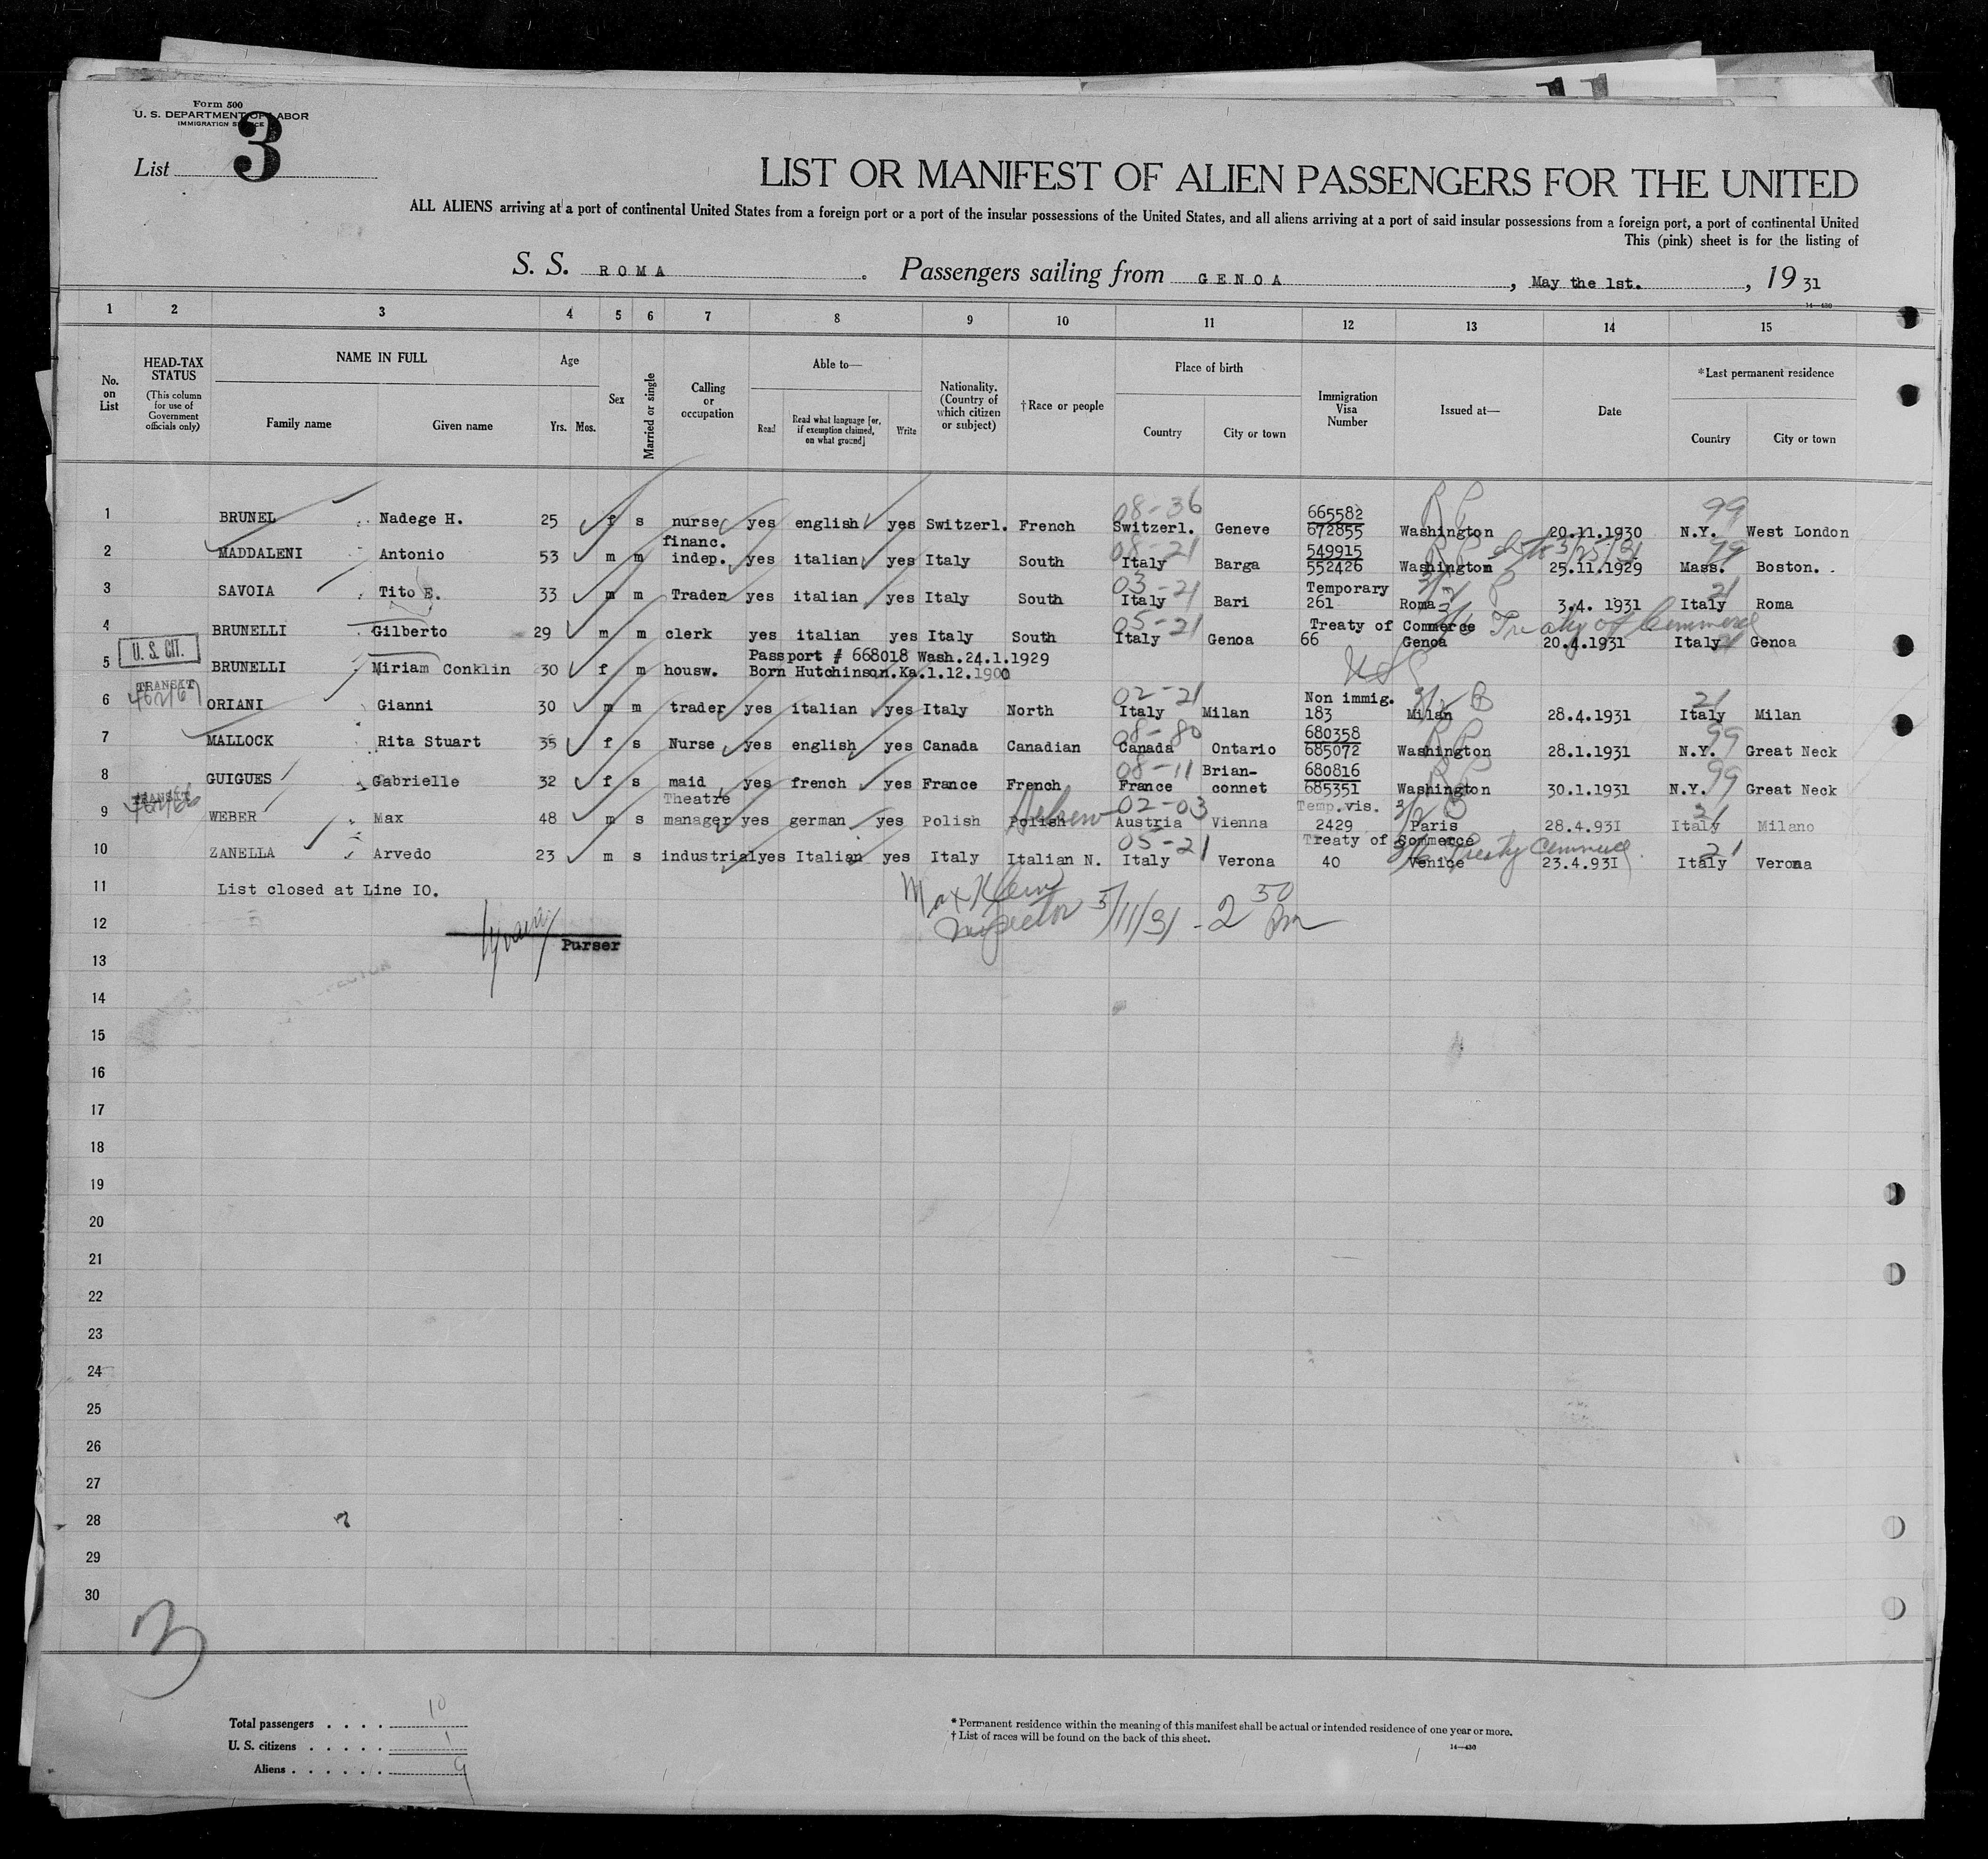 Form 500
U. S. DEPARTMENT OF LABOR
IMMIGRATION SERVICE
List 3
LIST OR MANIFEST OF ALIEN PASSENGERS FOR THE UNITED
ALL ALIENS arriving at a port of continental United States from a foreign port or a port of the insular possessions of the United States, and all aliens arriving at a port of said insular possessions from a foreign port, a port of continental United
This (pink) sheet is for the listing of
S. S. ROMA. Passengers sailing from GENOA, May the 1st., 1931
14—430
1 2 3 4 5 6 7 8 9 10 11 12 13 14 15
No. on List
HEAD-TAX STATUS
(This column for use of Government officials only)
NAME IN FULL
Family name Given name
Age
Yrs. Mos.
Sex
Married or single
Calling or occupation
Able to—
Read
Read what language [or, if exemption claimed, on what ground]
Write
Nationality. (Country of which citizen or subject)
†Race or people
Place of birth
Country City or town
Immigration Visa Number
Issued at—
Date
*Last permanent residence
Country City or town
08-36 665582 R P 99
1 BRUNEL Nadege H. 25 f s nurse yes english yes Switzerl. French Switzerl. Geneve 672855 Washington 20.11.1930 N.Y. West London
financ. 08-21 549915 R P 3/25/31 99
2 MADDALENI Antonio 53 m m indep. yes italian yes Italy South Italy Barga 552426 Washington 25.11.1929 Mass. Boston.
03-21 Temporary 21
3 SAVOIA Tito E. 33 m m Trader yes italian yes Italy South Italy Bari 261 Roma 3.4. 1931 Italy Roma
05-21 Treaty of Commerce Treaty of Commerce
4 BRUNELLI Gilberto 29 m m clerk yes italian yes Italy South Italy Genoa 66 Genoa 20.4.1931 Italy 21 Genoa
U. S. CIT.
Passport # 668018 Wash.24.1.1929
5 BRUNELLI Miriam Conklin 30 f m housw. Born Hutchinson.Ka.1.12.1900
TRANSIT 02-21 Non immig. 3/2 B 21
6 ORIANI Gianni 30 m m trader yes italian yes Italy North Italy Milan 183 Milan 28.4.1931 Italy Milan
08-80 680358 R P 99
7 MALLOCK Rita Stuart 35 f s Nurse yes english yes Canada Canadian Canada Ontario 685072 Washington 28.1.1931 N.Y. Great Neck
08-11 Brian- 680816 R P 99
8 GUIGUES Gabrielle 32 f s maid yes french yes France French France connet 685351 Washington 30.1.1931 N.Y. Great Neck
TRANSIT Theatre Hebrew 02-03 Temp.vis. 3/2 B 21
9 WEBER Max 48 m s manager yes german yes Polish Polish Austria Vienna 2429 Paris 28.4.931 Italy Milano
05-21 Treaty of Commerce 3/6 Treaty Commerce 21
10 ZANELLA Arvedo 23 m s industrial yes Italian yes Italy Italian N. Italy Verona 40 Venice 23.4.931 Italy Verona
11 List closed at Line IO.
Max Klein
Inspector 5/11/31 - 2 30 Pm
12
Purser
13
14
15
16
17
18
19
20
21
22
23
24
25
26
27
28
29
30
3
Total passengers . . . . 10
U. S. citizens . . . . . 1
Aliens . . . . . . 9
* Permanent residence within the meaning of this manifest shall be actual or intended residence of one year or more.
† List of races will be found on the back of this sheet.
14—430